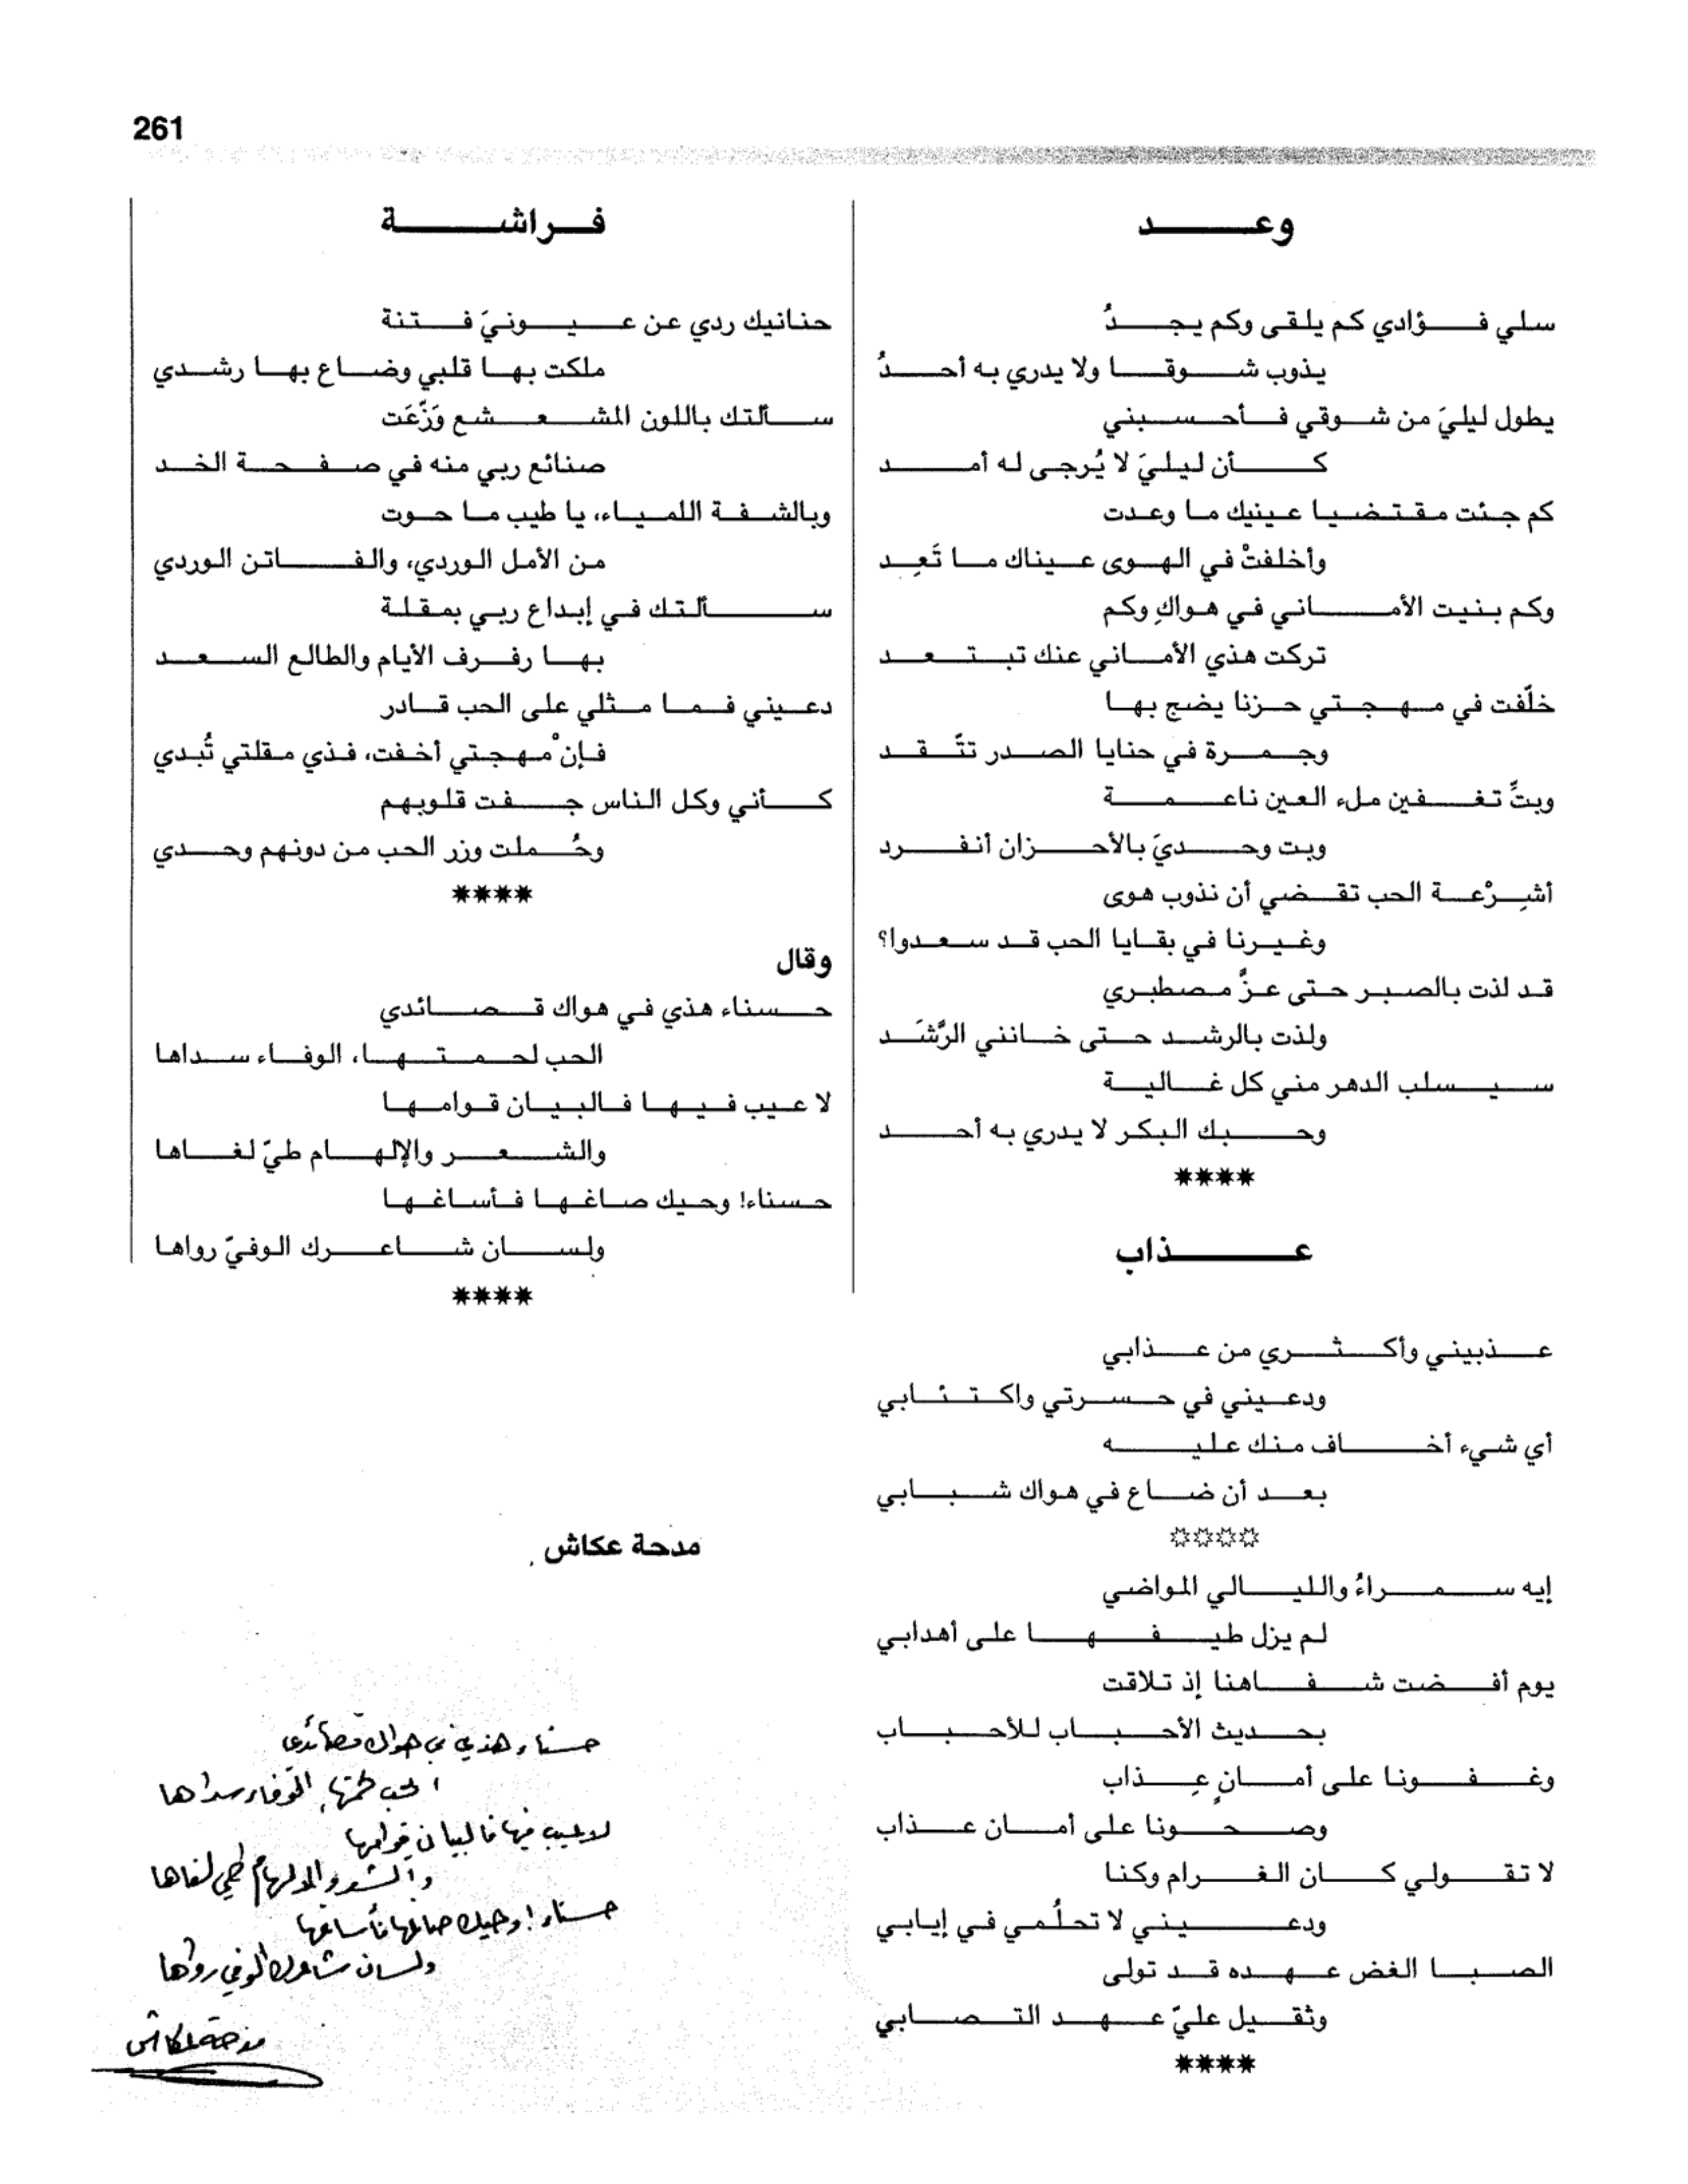 261
وعد
سلي فؤادي كم يلقى وكم يجدُ
يذوب شوقا ولا يدري به أحدُ
يطول ليليَ من شوقي فأحسبني
كأن ليليَ لا يُرجى له أمد
كم جئت مقتضيا عينيك ما وعدت
وأخلفتْ في الهوى عيناك ما تَعِد
وكم بنيت الأماني في هواكِ وكم
تركت هذي الأماني عنك تبتعد
خلّفت في مهجتي حزنا يضج بها
وجمرة في حنايا الصدر تتّقد
وبتِّ تغفين ملء العين ناعمة
وبت وحديَ بالأحزان أنفرد
أشِرْعة الحب تقضي أن نذوب هوى
وغيرنا في بقايا الحب قد سعدوا؟
قد لذت بالصبر حتى عزَّ مصطبري
ولذت بالرشد حتى خانني الرَّشَد
سيسلب الدهر مني كل غالية
وحبك البكر لا يدري به أحد
****
عذاب
عذبيني وأكثري من عذابي
ودعيني في حسرتي واكتئابي
أي شيء أخاف منك عليه
بعد أن ضاع في هواك شبابي
☼☼☼☼
إيه سمراءُ والليالي المواضي
لم يزل طيفها على أهدابي
يوم أفضت شفاهنا إذ تلاقت
بحديث الأحباب للأحباب
وغفونا على أمانٍ عِذاب
وصحونا على أمان عذاب
لا تقولي كان الغرام وكنا
ودعيني لا تحلُمي في إيابي
الصبا الغض عهده قد تولى
وثقيل عليّ عهد التصابي
****
فراشة
حنانيك ردي عن عيونيَ فتنة
ملكت بها قلبي وضاع بها رشدي
سألتك باللون المشعشع وَزّعَت
صنائع ربي منه في صفحة الخد
وبالشفة اللمياء، يا طيب ما حوت
من الأمل الوردي، والفاتن الوردي
سألتك في إبداع ربي بمقلة
بها رفرف الأيام والطالع السعد
دعيني فما مثلي على الحب قادر
فإنْ مهجتي أخفت، فذي مقلتي تُبدي
كأني وكل الناس جفت قلوبهم
وحُملت وزر الحب من دونهم وحدي
****
وقال
حسناء هذي في هواك قصائدي
الحب لحمتها، الوفاء سداها
لا عيب فيها فالبيان قوامها
والشعر والإلهام طيّ لغاها
حسناء! وحيك صاغها فأساغها
ولسان شاعرك الوفيّ رواها
****
مدحة عكاش
حسناء هذي في هواك قصائدي
الحب لحمتها، الوفاء سداها
لا عيب فيها فالبيان قوامها
والشعر والإلهام طي لغاها
حسناء! وحيك صاغها فأساغها
ولسان شاعرك الوفي رواها
مدحة عكاش